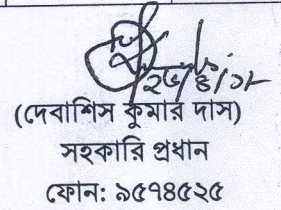 ২৬/৪/১৮
(দেবাশিস কুমার দাস)
সহকারি প্রধান
ফোন: ৯৫৭৪৫২৫